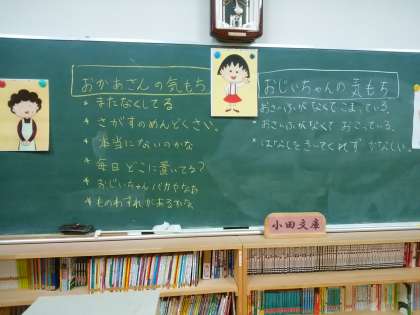 おかあさんの気もち
またなくしてる
さがすのめんどくさい。
本当にないのかな
毎日どこに置いてる?
おじいちゃんバカやなあ
ものわすれがあるかな
おじいちゃんの気もち
おさいふがなくてこまっている。
おさいふがなくておこっている。
はなしをきいてくれずかなしい。
小田文庫